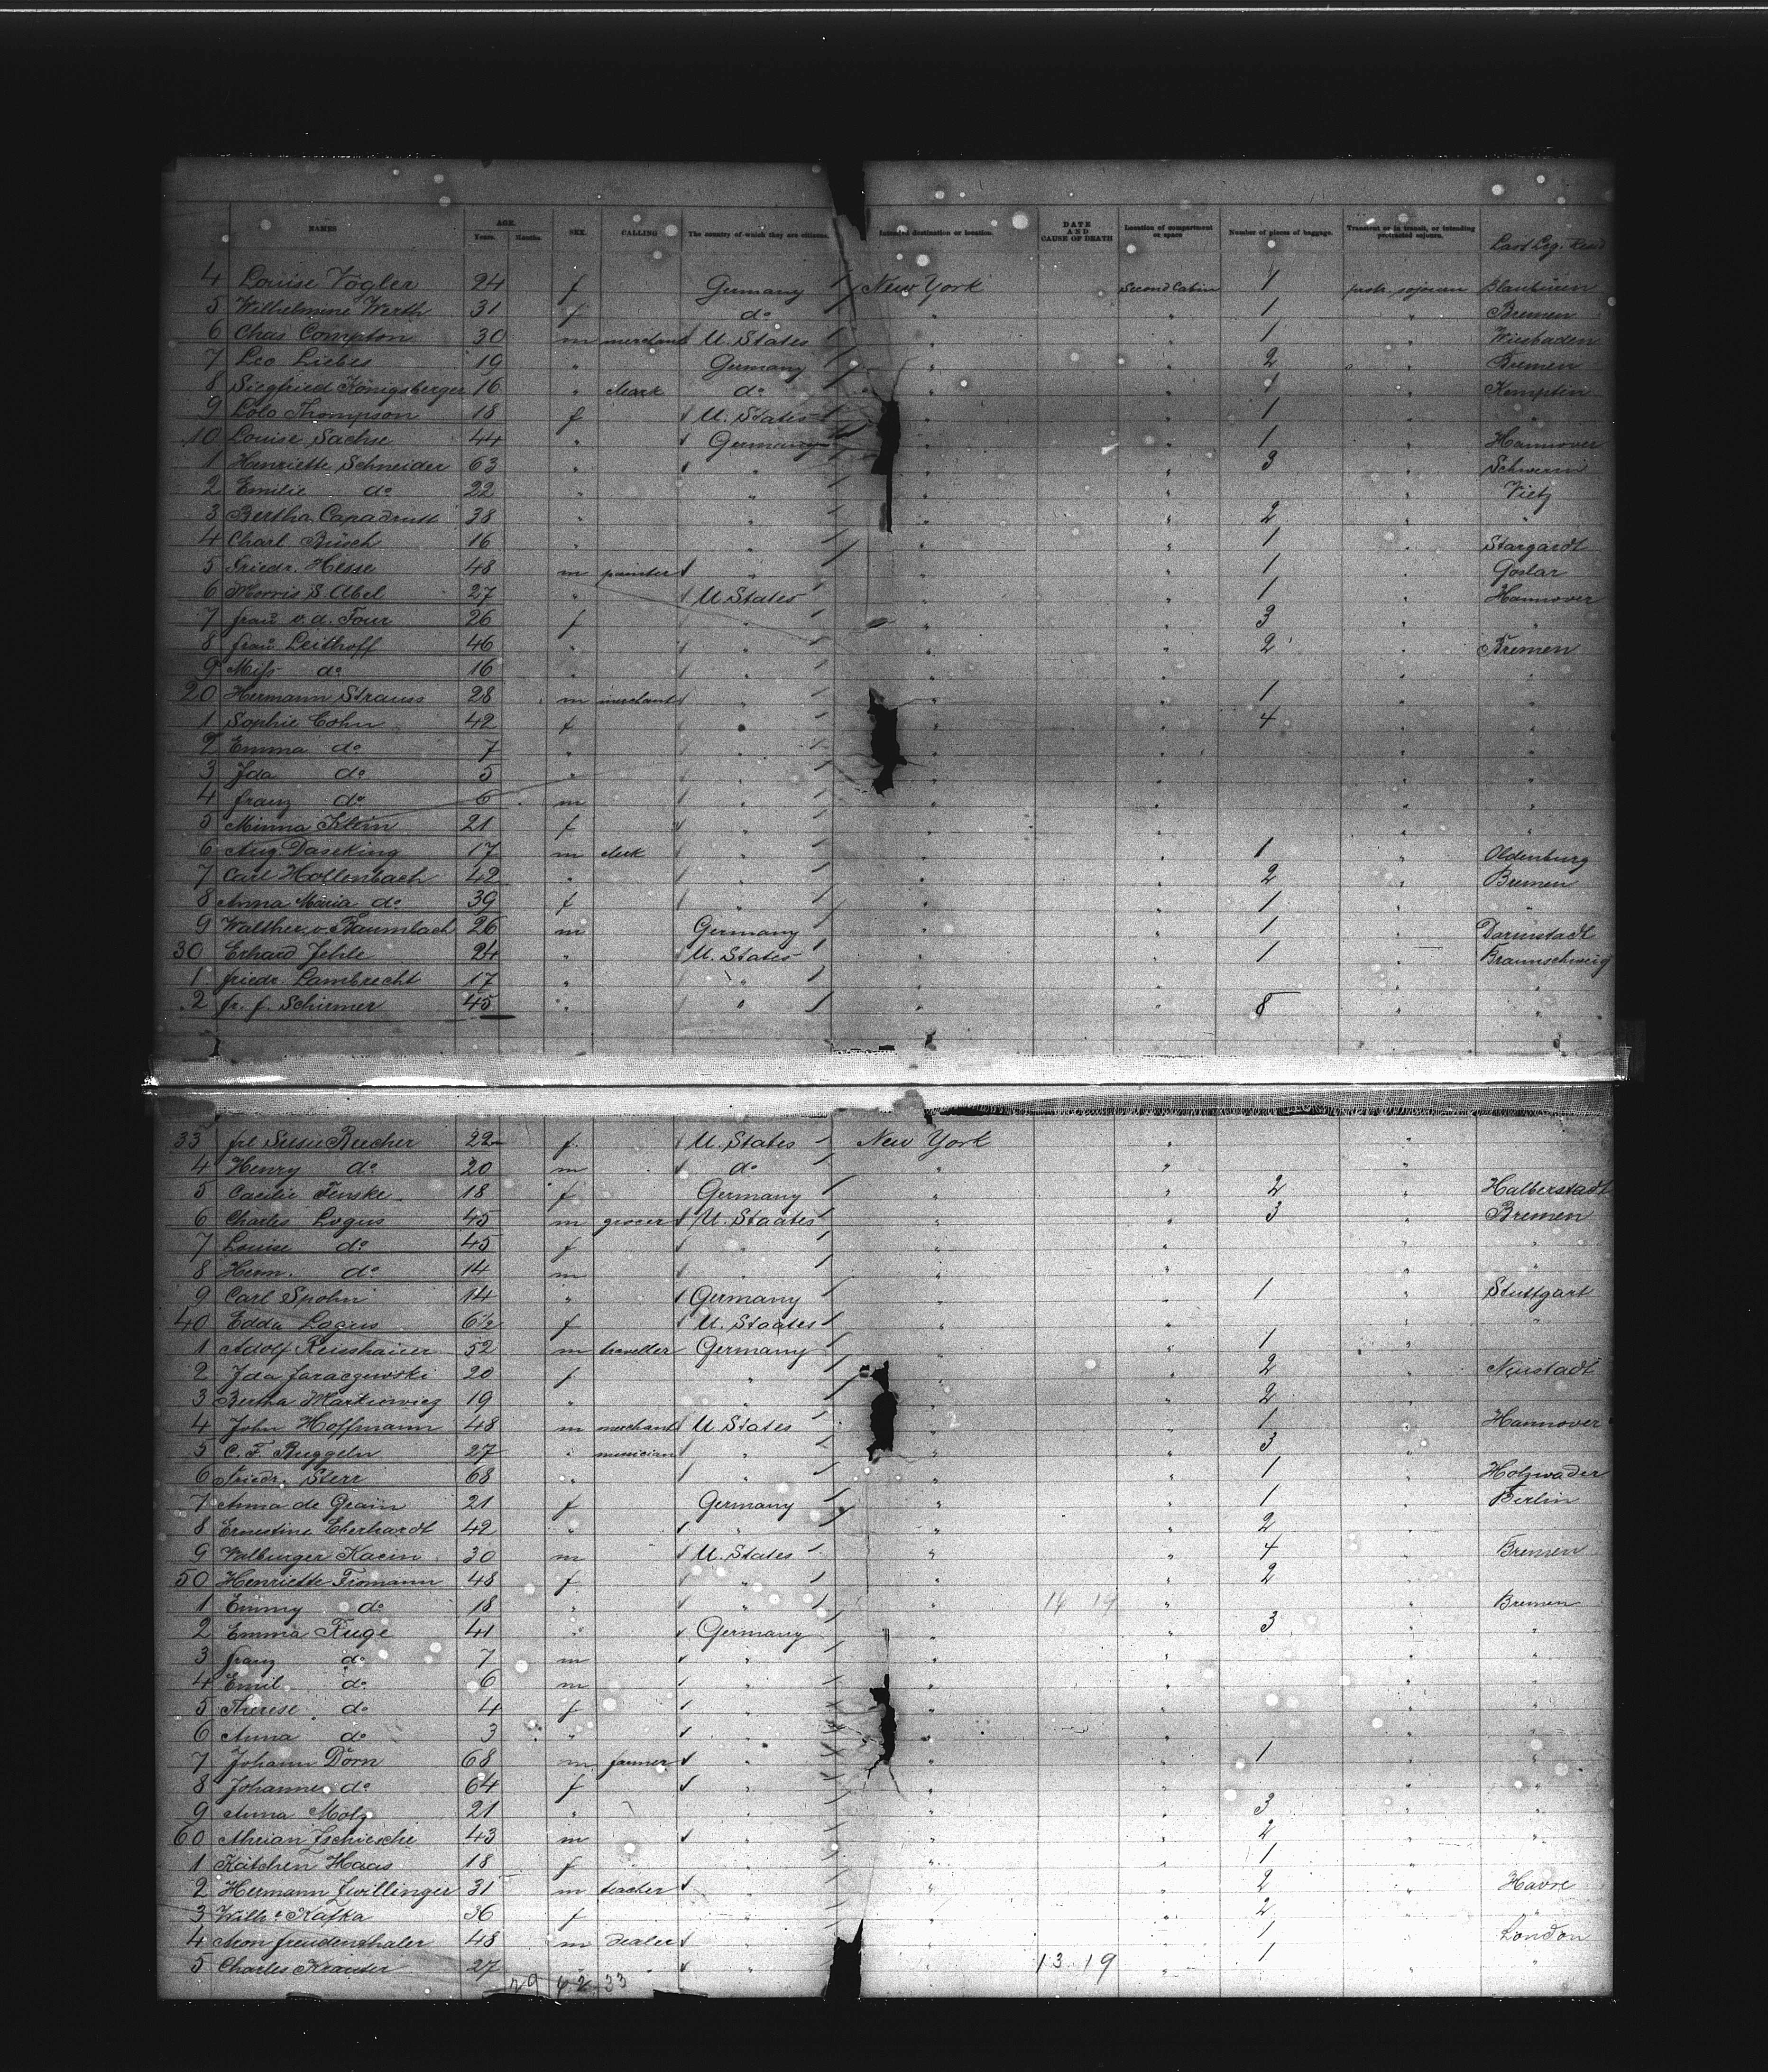 NAMES AGE. Years. Months. SEX. CALLING The country of which they are citizens. Intended destination or location. DATE AND CAUSE OF DEATH Location of compartment or space Number of pieces of baggage. Transient or in transit, or intending protracted sojourn. Last Leg. Resid
4 Louise Vogler 24 f Germany New York Second Cabin 1 sojourn
5 Wilhelmine Werth 31 f do " " 1 " Bremen
6 Chas Compton 30 m merchant U. States " " 1 " Wiesbaden
7 Leo Liebes 19 " Germany " " 2 " Bremen
8 Siegfried Königsberger 16 " clerk do " " 1 " Kempten
9 Lolo Thompson 18 f U. States " " 1 " "
10 Louise Sachse 44 " Germany " " 1 " Hannover
1 Henriette Schneider 63 " " " " 3 " Schwerin
2 Emilie do 22 " " " " " Vietz
3 Bertha Capadrutt 38 " " " " 2 " "
4 Charl. Büsch 16 " " " " 1 " Stargardt
5 Friedr. Hesse 48 m painter " " " 1 " Goslar
6 Morris S. Abel 27 " U. States " " 1 " Hannover
7 frau v. d. Four 26 f " " " 3 " "
8 frau Leithoff 46 " " " " 2 " Bremen
9 Miss do 16 " " " " " "
20 Hermann Strauss 28 m merchant " " " 1 " "
1 Sophie Cohn 42 f " " " 4 " "
2 Emma do 7 " " " " " "
3 Ida do 5 " " " " " "
4 franz do 6 m " " " " "
5 Minna Klein 21 f " " " " "
6 Aug. Daseking 17 m clerk " " " 1 " Oldenburg
7 Carl Hollenbach 42 " " " " 2 " Bremen
8 Anna Maria do 39 f " " " 1 " "
9 Walther v. Baumbach 26 m Germany " " 1 " Darmstadt
30 Erhard Jehle 24 " U. States " " 1 " Braunschweig
1 friedr. Lambrecht 17 " " " " " "
2 fr. f. Schirmer 45 " " " " 8 " "
33 frl Reicher 22 f U. States New York " "
4 Henry do 20 m do " " "
5 Cacilie Fenske 18 f Germany " " 2 " Halberstadt
6 Charles Logus 45 m grocer U. Staates " " 3 " Bremen
7 Louise do 45 f " " " " "
8 Herm. do 14 m " " " " "
9 Carl Spohn 14 " Germany " " 1 " Stuttgart
40 Edda Logus 6½ f U. Staates " " " "
1 Adolf 52 m traveller Germany " " 1 "
2 Ida Jaraczewski 20 f " " " 2 " Neustadt
3 Bertha Markiewicz 19 " " " " 2 " "
4 John Hoffmann 48 m merchant U. States " " 1 " Hannover
5 C. F. Ruggeln 27 " musician " " " 3 " "
6 Friedr. Sterr 68 " " " " 1 "
7 Anna de Grain 21 f Germany " " 1 " Berlin
8 Ernestine Eberhardt 42 " " " " 2 " "
9 Walburger Kacin 30 m U. States " " 4 " Bremen
50 Henriette Tiomann 48 f " " " 2 " "
1 Emmy do 18 " " " 14 19 " " Bremen
2 Emma Ruge 41 " Germany " " 3 " "
3 franz do 7 m " " " " "
4 Emil do 6 m " " " " "
5 Therese do 4 f " " " " "
6 Anna do 3 " " " " " "
7 Johann Dorn 68 m farmer " " " 1 " "
8 Johanne do 64 f " " " " "
9 Anna Molz 21 " " " " 3 " "
60 Zschiesche 43 m " " " 2 " "
1 Kätchen Haas 18 f " " " 1 " "
2 Hermann Zwillinger 31 m teacher " " " 2 " Havre
3 Wilhe Kafka 36 f " " " 2 " "
4 Aron freudenthaler 48 m dealer " " " 1 " London
5 Charles Krauter 27 " " " " 13 19 " 1 " "
29 62 33